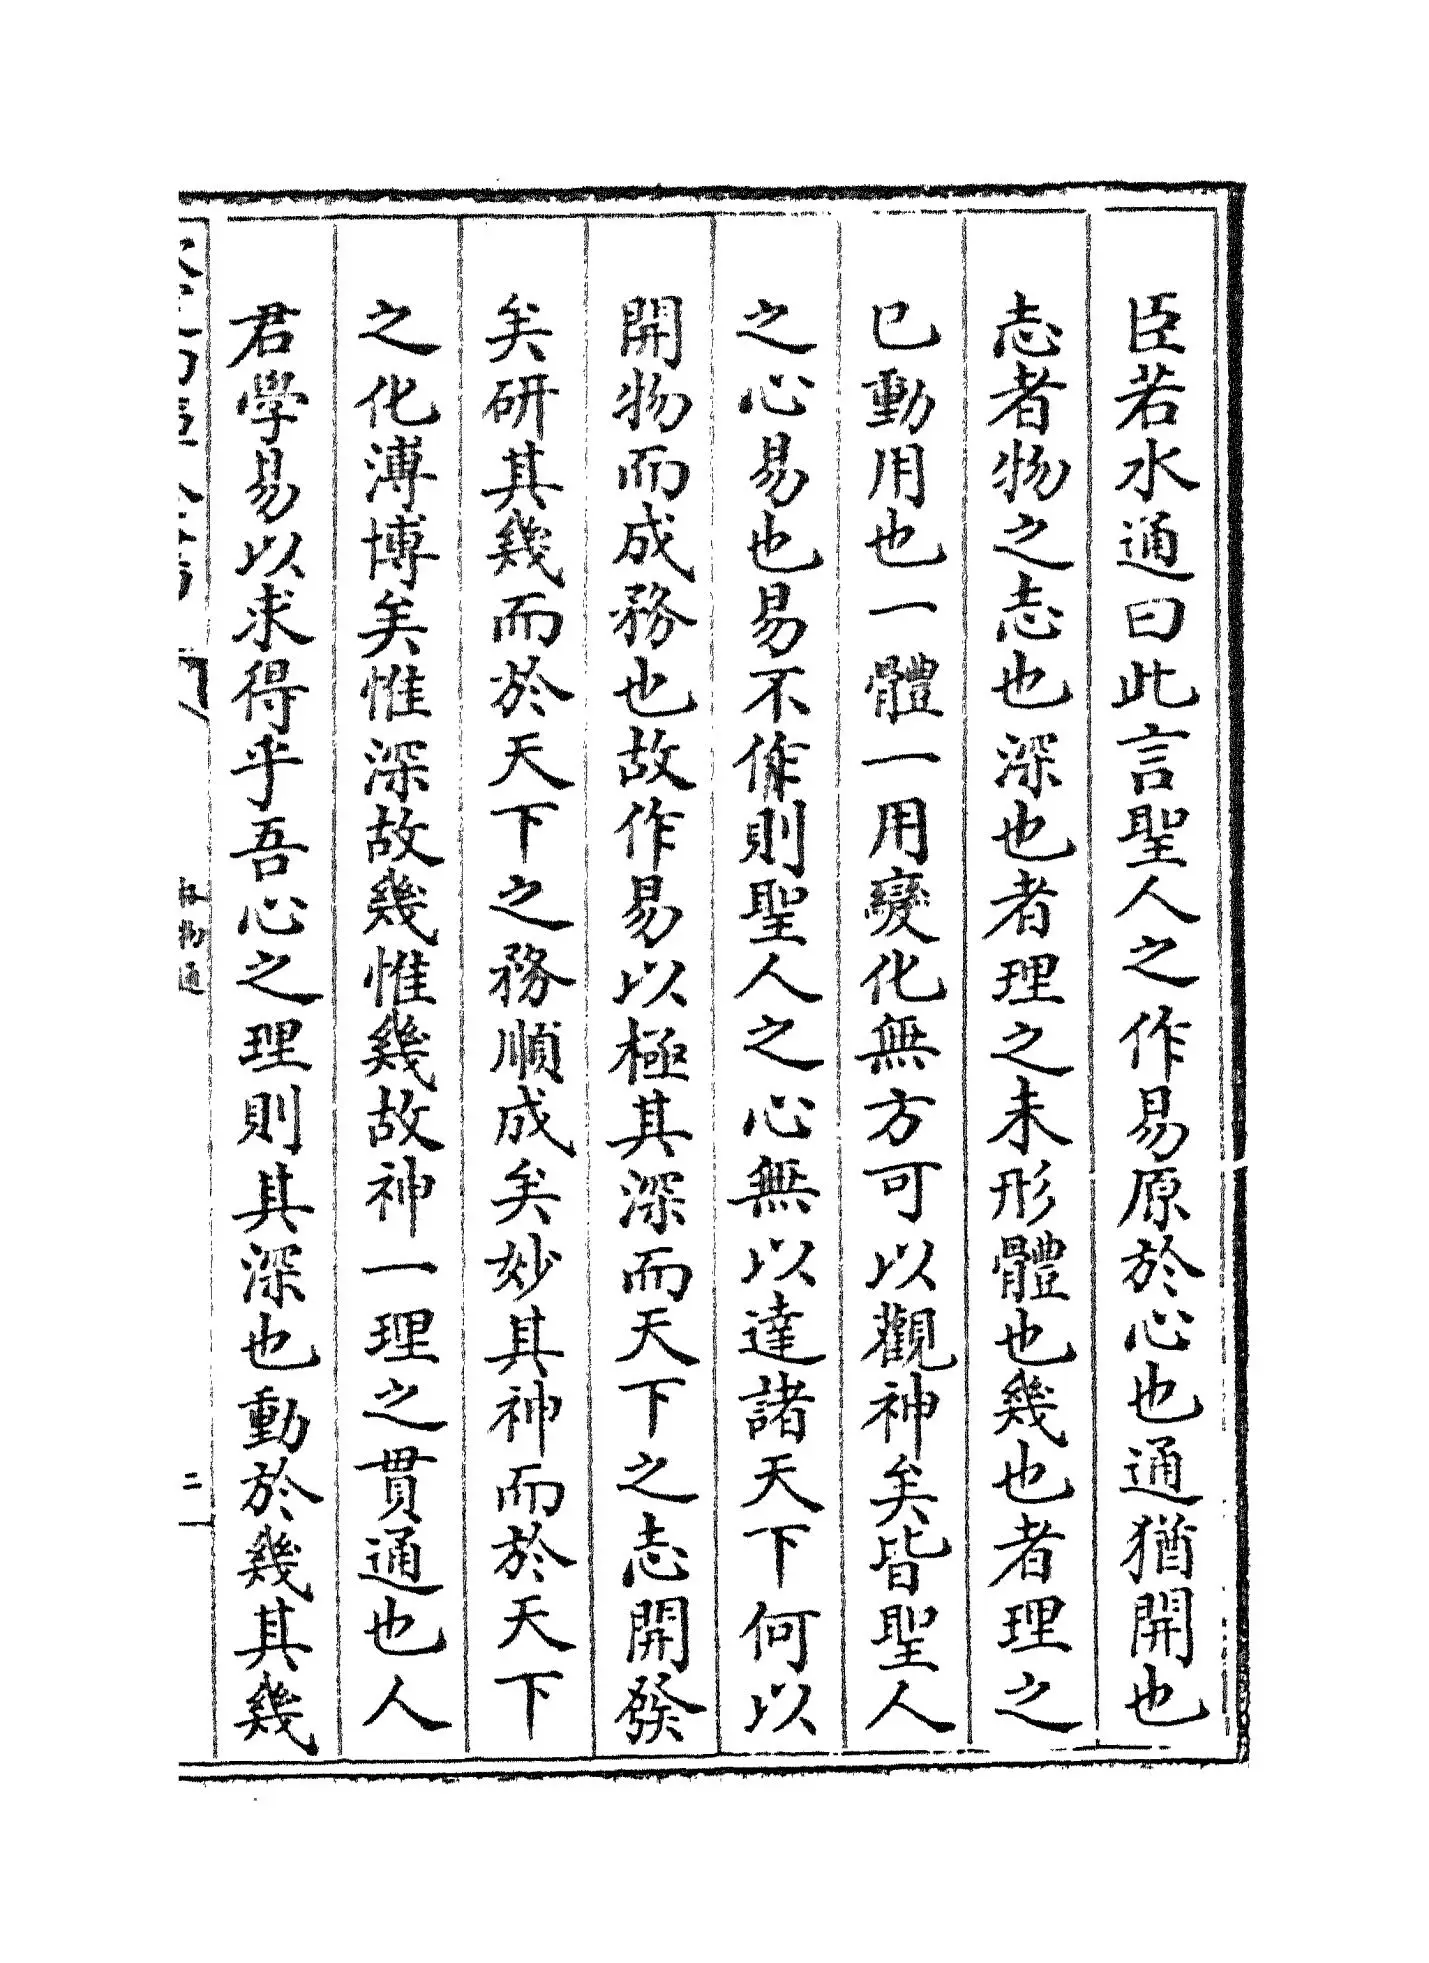 臣若水通曰此言聖人之作易原於心也通猶開也
志者物之志也深也者理之未形體也幾也者理之
已動用也一體一用變化無方可以觀神矣皆聖人
之心易也易不作則聖人之心無以達諸天下何以
開物而成務也故作易以極其深而天下之志開發
矣研其幾而於天下之務順成矣妙其神而於天下
之化溥博矣惟深故幾惟幾故神一理之貫通也人
君學易以求得乎吾心之理則其深也動於幾其幾
格物通
二